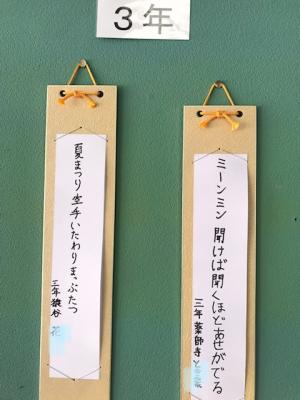 3年
ミーンミン 聞けば聞くほどあせがでる
三年 薬師寺
夏まつり空手いたわりまっぷたつ
三年 猿谷 花